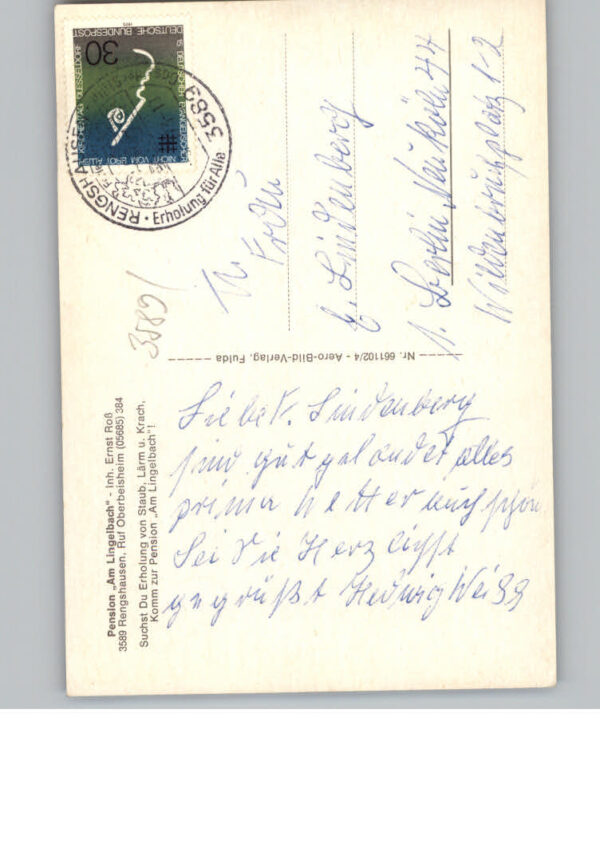 Pension „Am Lingelbach" - Inh. Ernst Roß
3589 Rengshausen, Ruf Oberbeisheim (05685) 384
Suchst Du Erholung von Staub, Lärm u. Krach,
Komm zur Pension „Am Lingelbach"!
Liebe Fr. Lindenberg
sind gut gelandet alles
prima Wetter auch schön
Sei Sie Herzlichst
gegrüßt Hedwig Weiss
Nr. 661102/4 - Aero-Bild-Verlag, Fulda
3589
DEUTSCHE BUNDESPOST
30
15. DEUTSCHER EVANGELISCHER
KIRCHENTAG DUESSELDORF
NICHT VOM BROT ALLEIN
3589 RENGSHAUSEN
Erholung für Alle
Frau
Lindenberg
1. Berlin Neuköln 44
Wildenbruchplatz 1-2